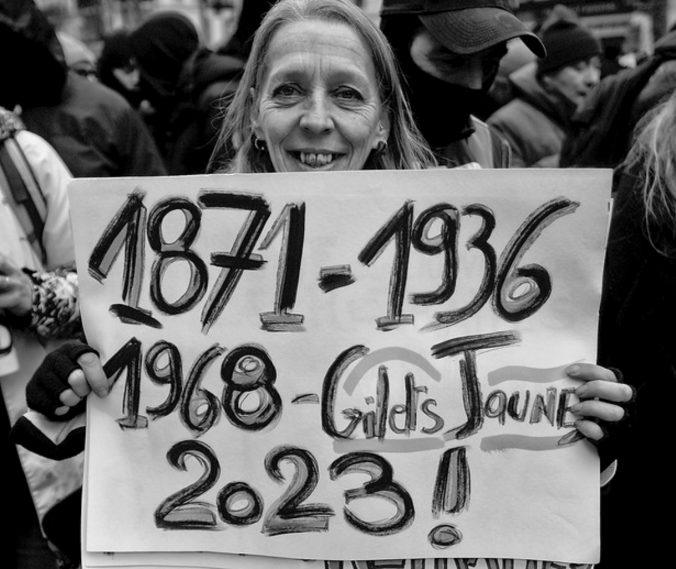 1871-1936
1968-Gilets JAUNE
2023!